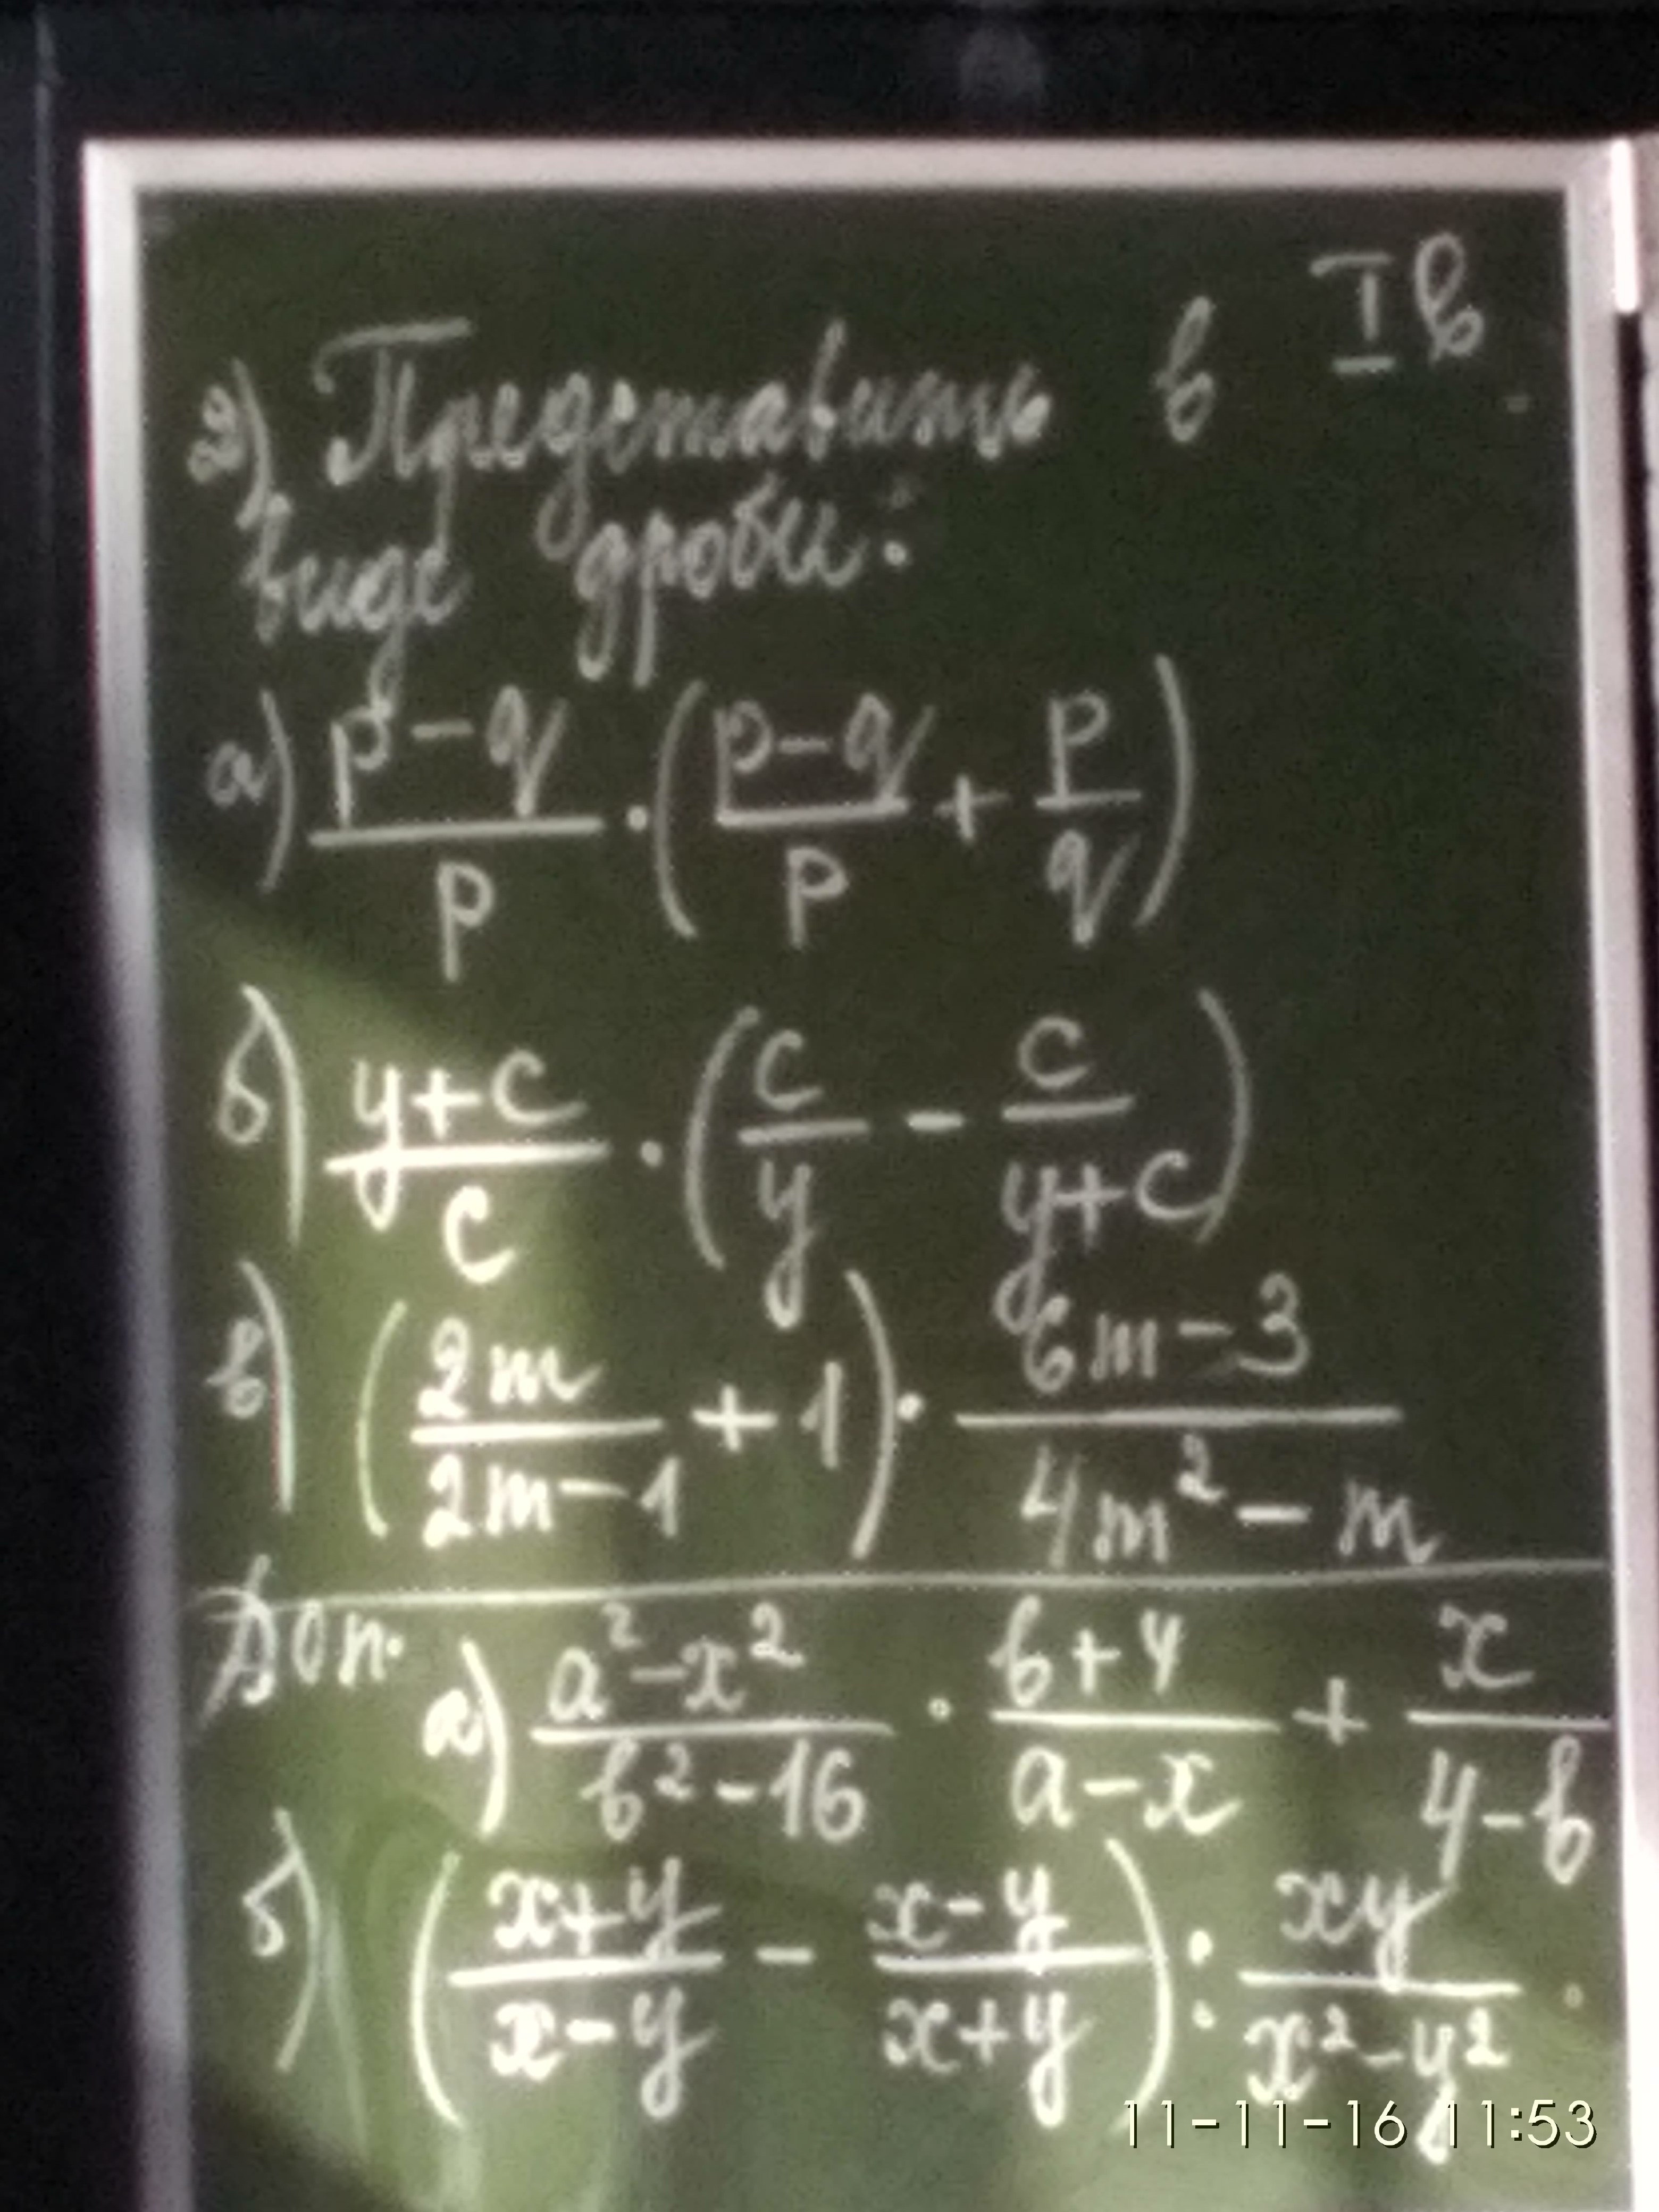 I в
2) Представить в
виде дроби:
а) \frac{p-q}{p} · ( \frac{p-q}{p} + \frac{p}{q} )
б) \frac{y+c}{c} · ( \frac{c}{y} - \frac{c}{y+c} )
в) ( \frac{2m}{2m-1} + 1 ) · \frac{6m-3}{4m²-m}
Доп. а) \frac{a²-x²}{b²-16} · \frac{b+4}{a-x} + \frac{x}{4-b}
б) ( \frac{x+y}{x-y} - \frac{x-y}{x+y} ) : \frac{xy}{x²-y²} .
11-11-16 11:53